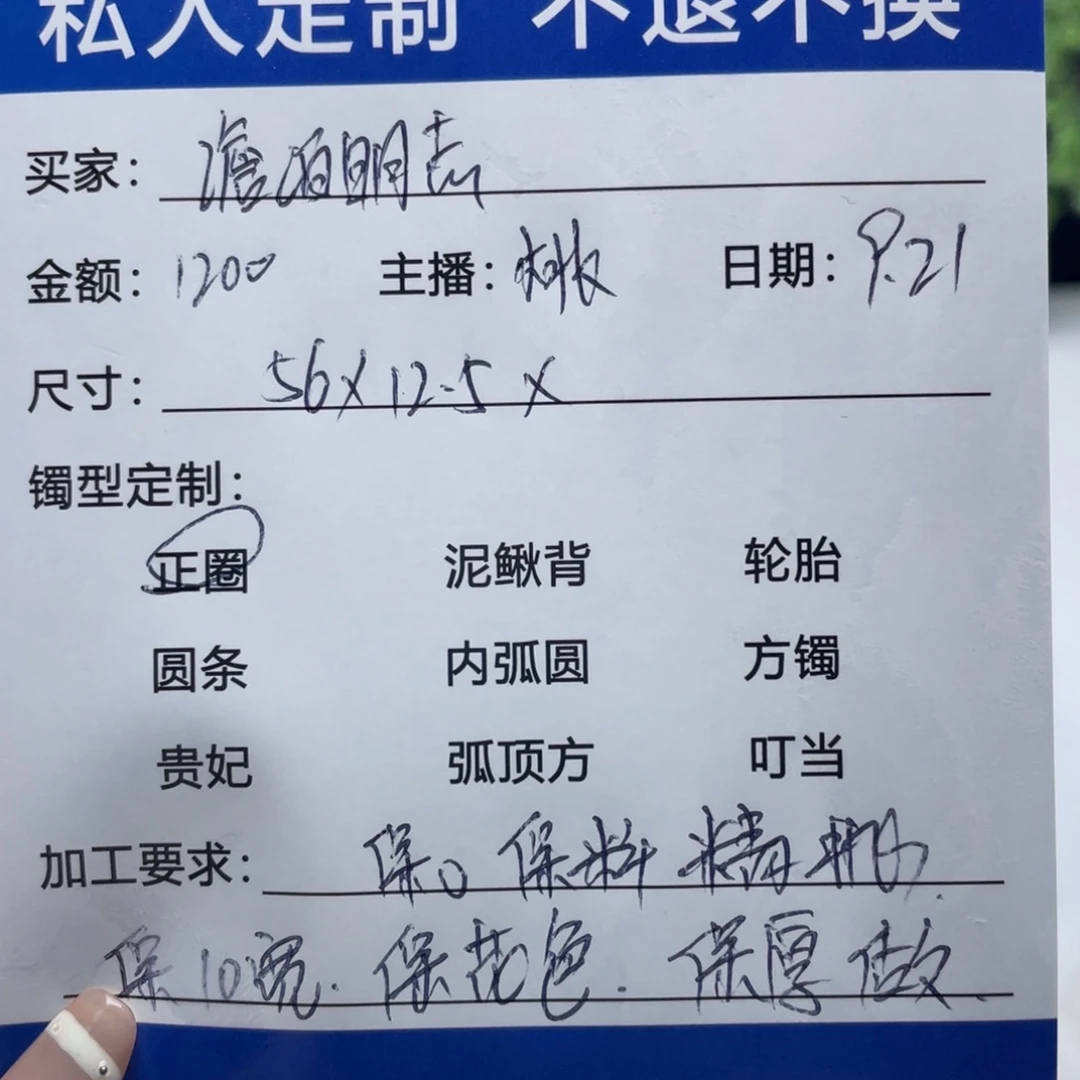 私人定制 不退不换
买家：澹泊明志
金额：1200 主播： 日期：9.21
尺寸：56X12.5X
镯型定制：
正圈 泥鳅背 轮胎
圆条 内弧圆 方镯
贵妃 弧顶方 叮当
加工要求：保。保料 精
保10宽. 保花色. 保厚做